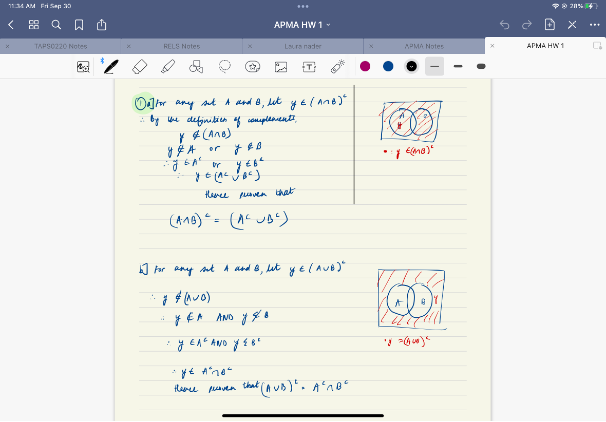 11:34 AM Fri Sep 30
28%
APMA HW 1
TAPS0220 Notes
RELS Notes
Louis nader
APMA Notes
APMA HW 1
① a] For any set A and B, let y ∈ (A∩B)ᶜ
∴ By the definition of complements,
y ∉ (A∩B)
y ∉ A or y ∉ B
∴ y ∈ Aᶜ or y ∈ Bᶜ
∴ y ∈ (Aᶜ ∪ Bᶜ)
Hence proven that
(A∩B)ᶜ = (Aᶜ ∪ Bᶜ)
A
y
• ∴ y ∈ (A∩B)ᶜ
b] For any set A and B, let y ∈ (A∪B)ᶜ
∴ y ∉ (A∪B)
∴ y ∉ A AND y ∉ B
∴ y ∈ Aᶜ AND y ∈ Bᶜ
∴ y ∈ Aᶜ∩Bᶜ
Hence proven that (A∪B)ᶜ = Aᶜ∩Bᶜ
A B y
• y = (A∪B)ᶜ